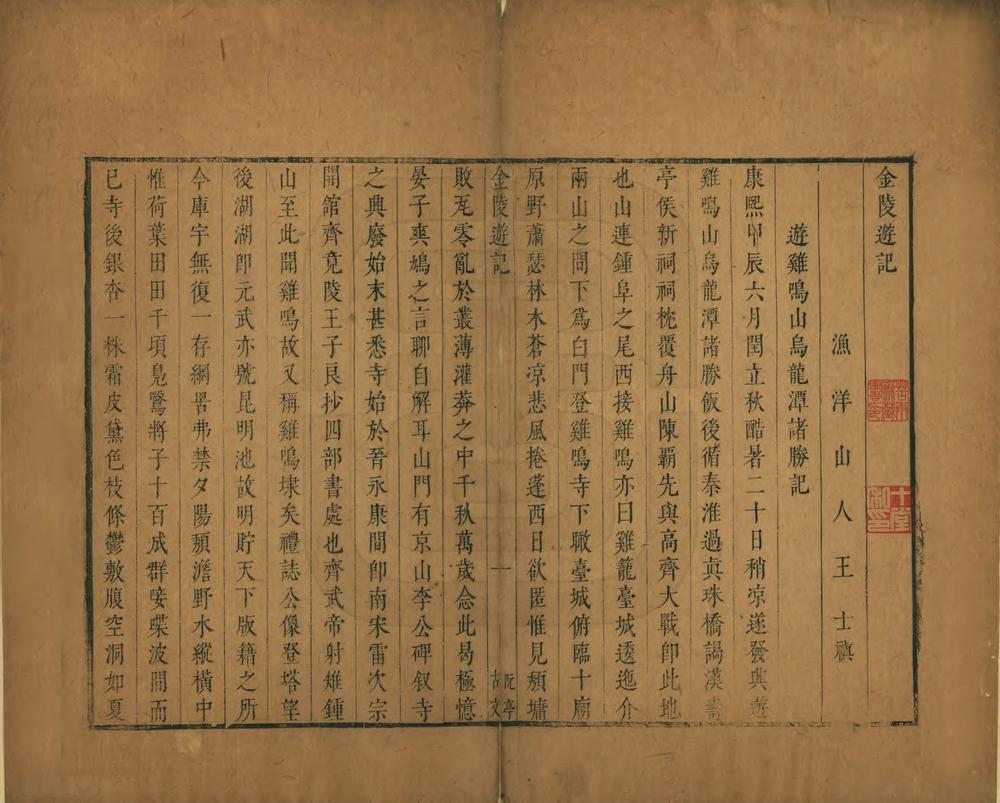 金陵遊記
漁洋山人王士禛
遊雞鳴山烏龍潭諸勝記
康熙甲辰六月閏立秋酷暑二十日稍凉遂發興遊
雞鳴山烏龍潭諸勝飯後循秦淮過眞珠橋謁漢壽
亭侯新祠祠枕覆舟山陳霸先與高齊大戰卽此地
也山連鍾阜之尾西接雞鳴亦曰雞籠臺城逶迤介
兩山之間下爲白門登雞鳴寺下瞰臺城俯臨十廟
原野蕭瑟林木蒼凉悲風捲蓬西日欲匿惟見頽墉
金陵遊記 一 阮亭古文
敗瓦零亂於叢薄灌莽之中千秋萬歲念此曷極憶
晏子爽鳩之言聊自解耳山門有京山李公碑叙寺
之興廢始末甚悉寺始於晉永康間卽南宋雷次宗
開館齊竟陵王子良抄四部書處也齊武帝射雉鍾
山至此聞雞鳴故又稱雞鳴埭矣禮誌公像登塔望
後湖湖卽元武亦號昆明池故明貯天下版籍之所
今庫宇無復一存網罟弗禁夕陽頽澹野水縱橫中
惟荷葉田田千頃鳧鷖將子十百成群唼蜨波間而
已寺後銀杏一株霜皮黛色枝條鬱敷腹空洞如夏